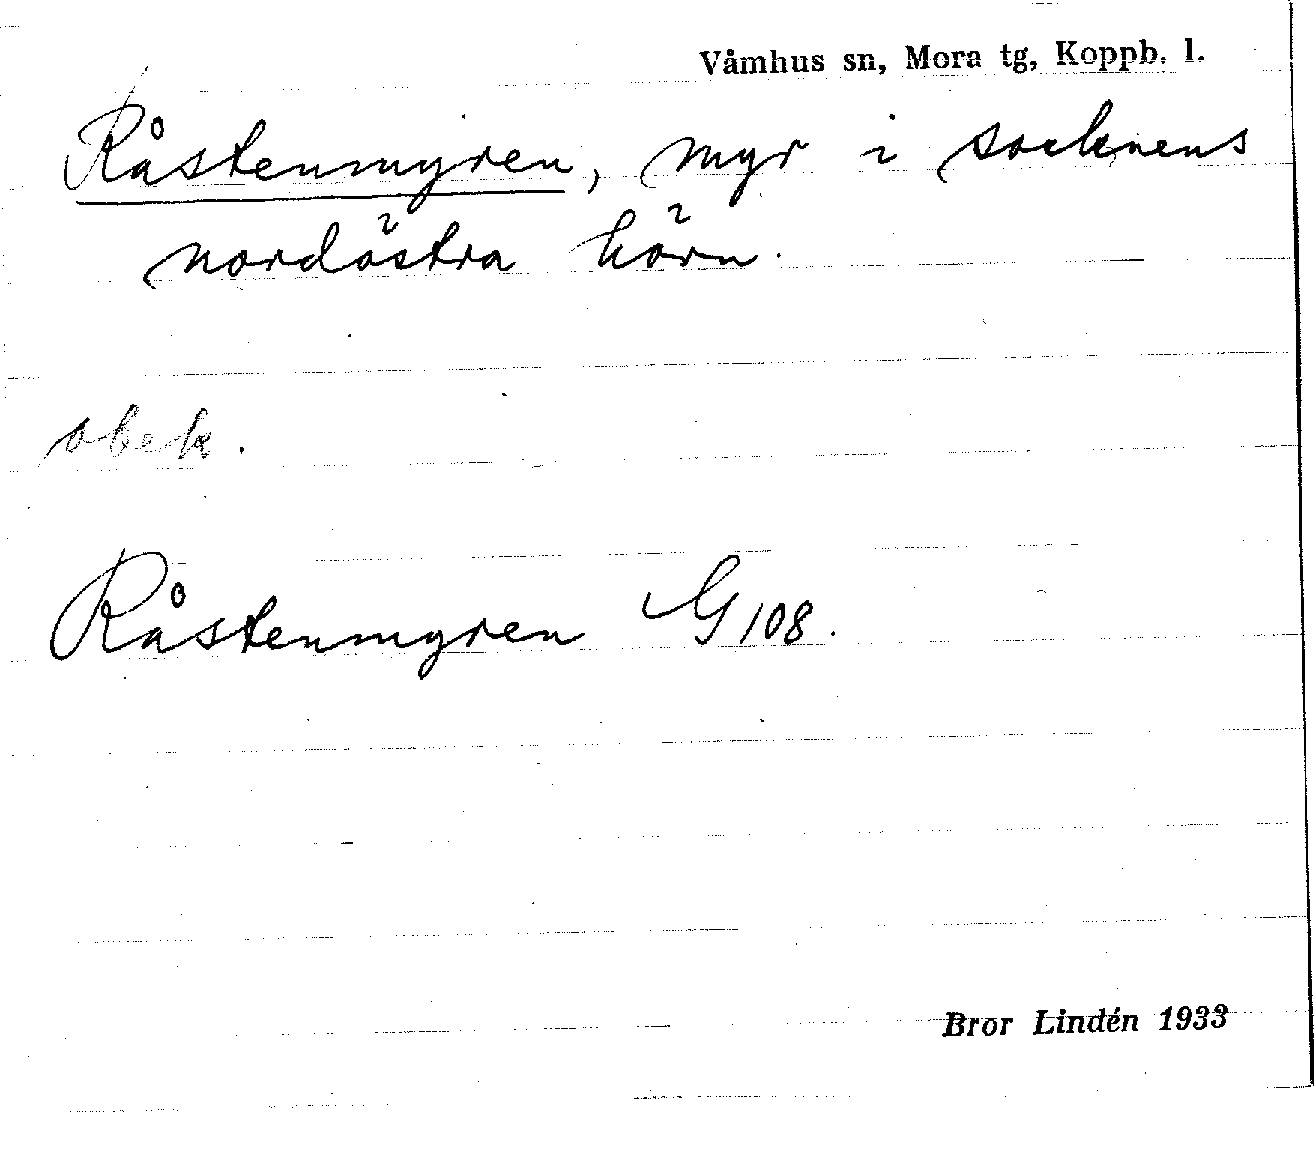 Våmhus sn, Mora tg, Koppb. l.
Råstenmyren, myr i socknens
nordöstra hörn.
obek.
Råstenmyren G 108.
Bror Lindén 1933